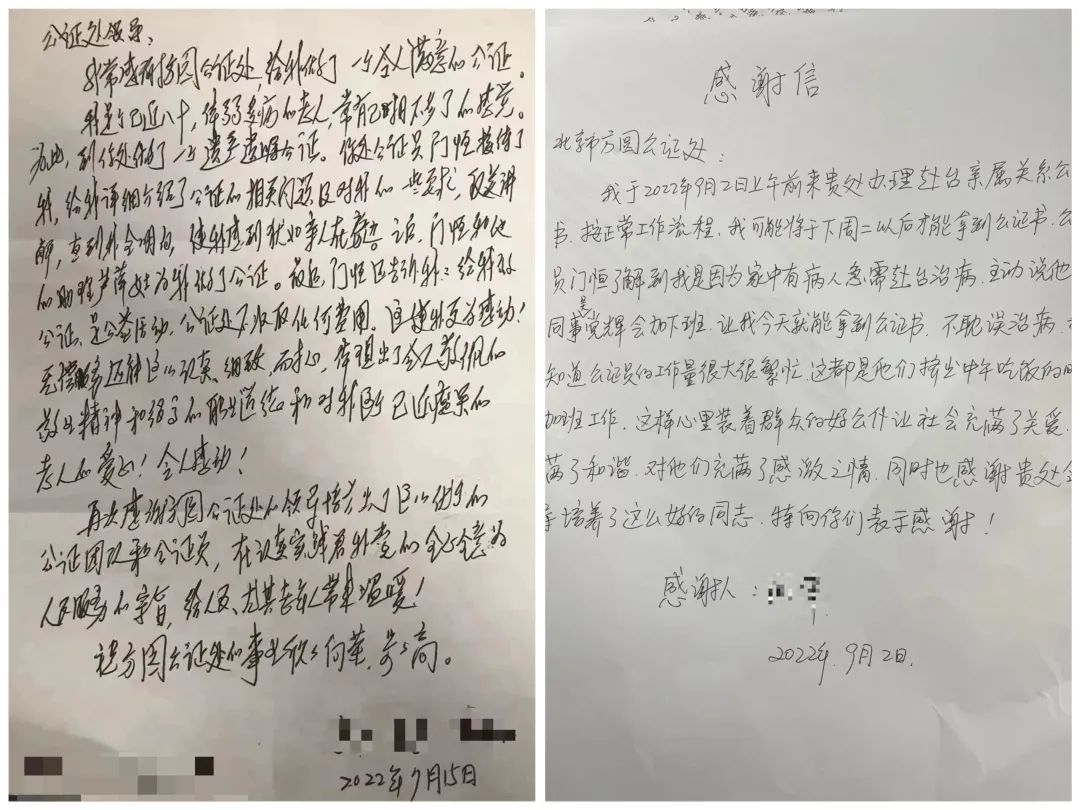 公证处领导:
非常感谢方圆公证处,给我做了一个令人满意的公证。
我是个已近八十,体弱多病的老人,常有已时日不多了的感觉。
为此,到你处做了一个遗产遗嘱公证。你处公证员门恒接待了
我,给我详细介绍了公证的相关问题及对我的一些要求,反复讲
解,直到我全明白,使我感到犹如亲人在
的助理芦萍女士为我做了公证。最后,门恒还告诉我:给我的
公证,是公益活动,公证处不收取任何费用。这使我更为感动!
认真、细致、耐心,体现出了令人敬佩的
敬业精神和高尚的职业道德和对我的
老人的爱心!令人感动!
再次感谢方圆公证处的领导培养出了这么优秀的
公证团队和公证员,在认真实践着我党的全心全意为
人民服务的宗旨,给人民、尤其老人带来温暖!
祝方圆公证处的事业欣欣向荣,步步高。
2022年9月15日
感谢信
北京市方圆公证处:
我于2022年9月2日上午前来贵处办理赴台亲属关系公
书.按正常工作流程,我可能将于下周二以后才能拿到公证书.公
员门恒了解到我是因为家中有病人急需赴台治病.主动说他
同事是党辉会加下班.让我今天就能拿到公证书.不耽误治病.
知道公证员的工作量很大很繁忙.这都是他们挤出中午吃饭的时
加班工作.这样心里装着群众的好公仆让社会充满了关爱.
满了和谐.对他们充满了感激之情.同时也感谢贵处
培养了这么好的同志.特向你们表示感谢!
感谢人:
2022年.9月2日.